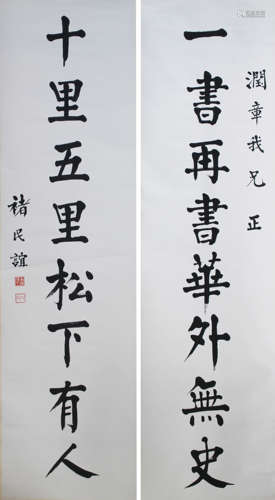 潤章我兄 正
一書再書華外無史
十里五里松下有人
褚民誼